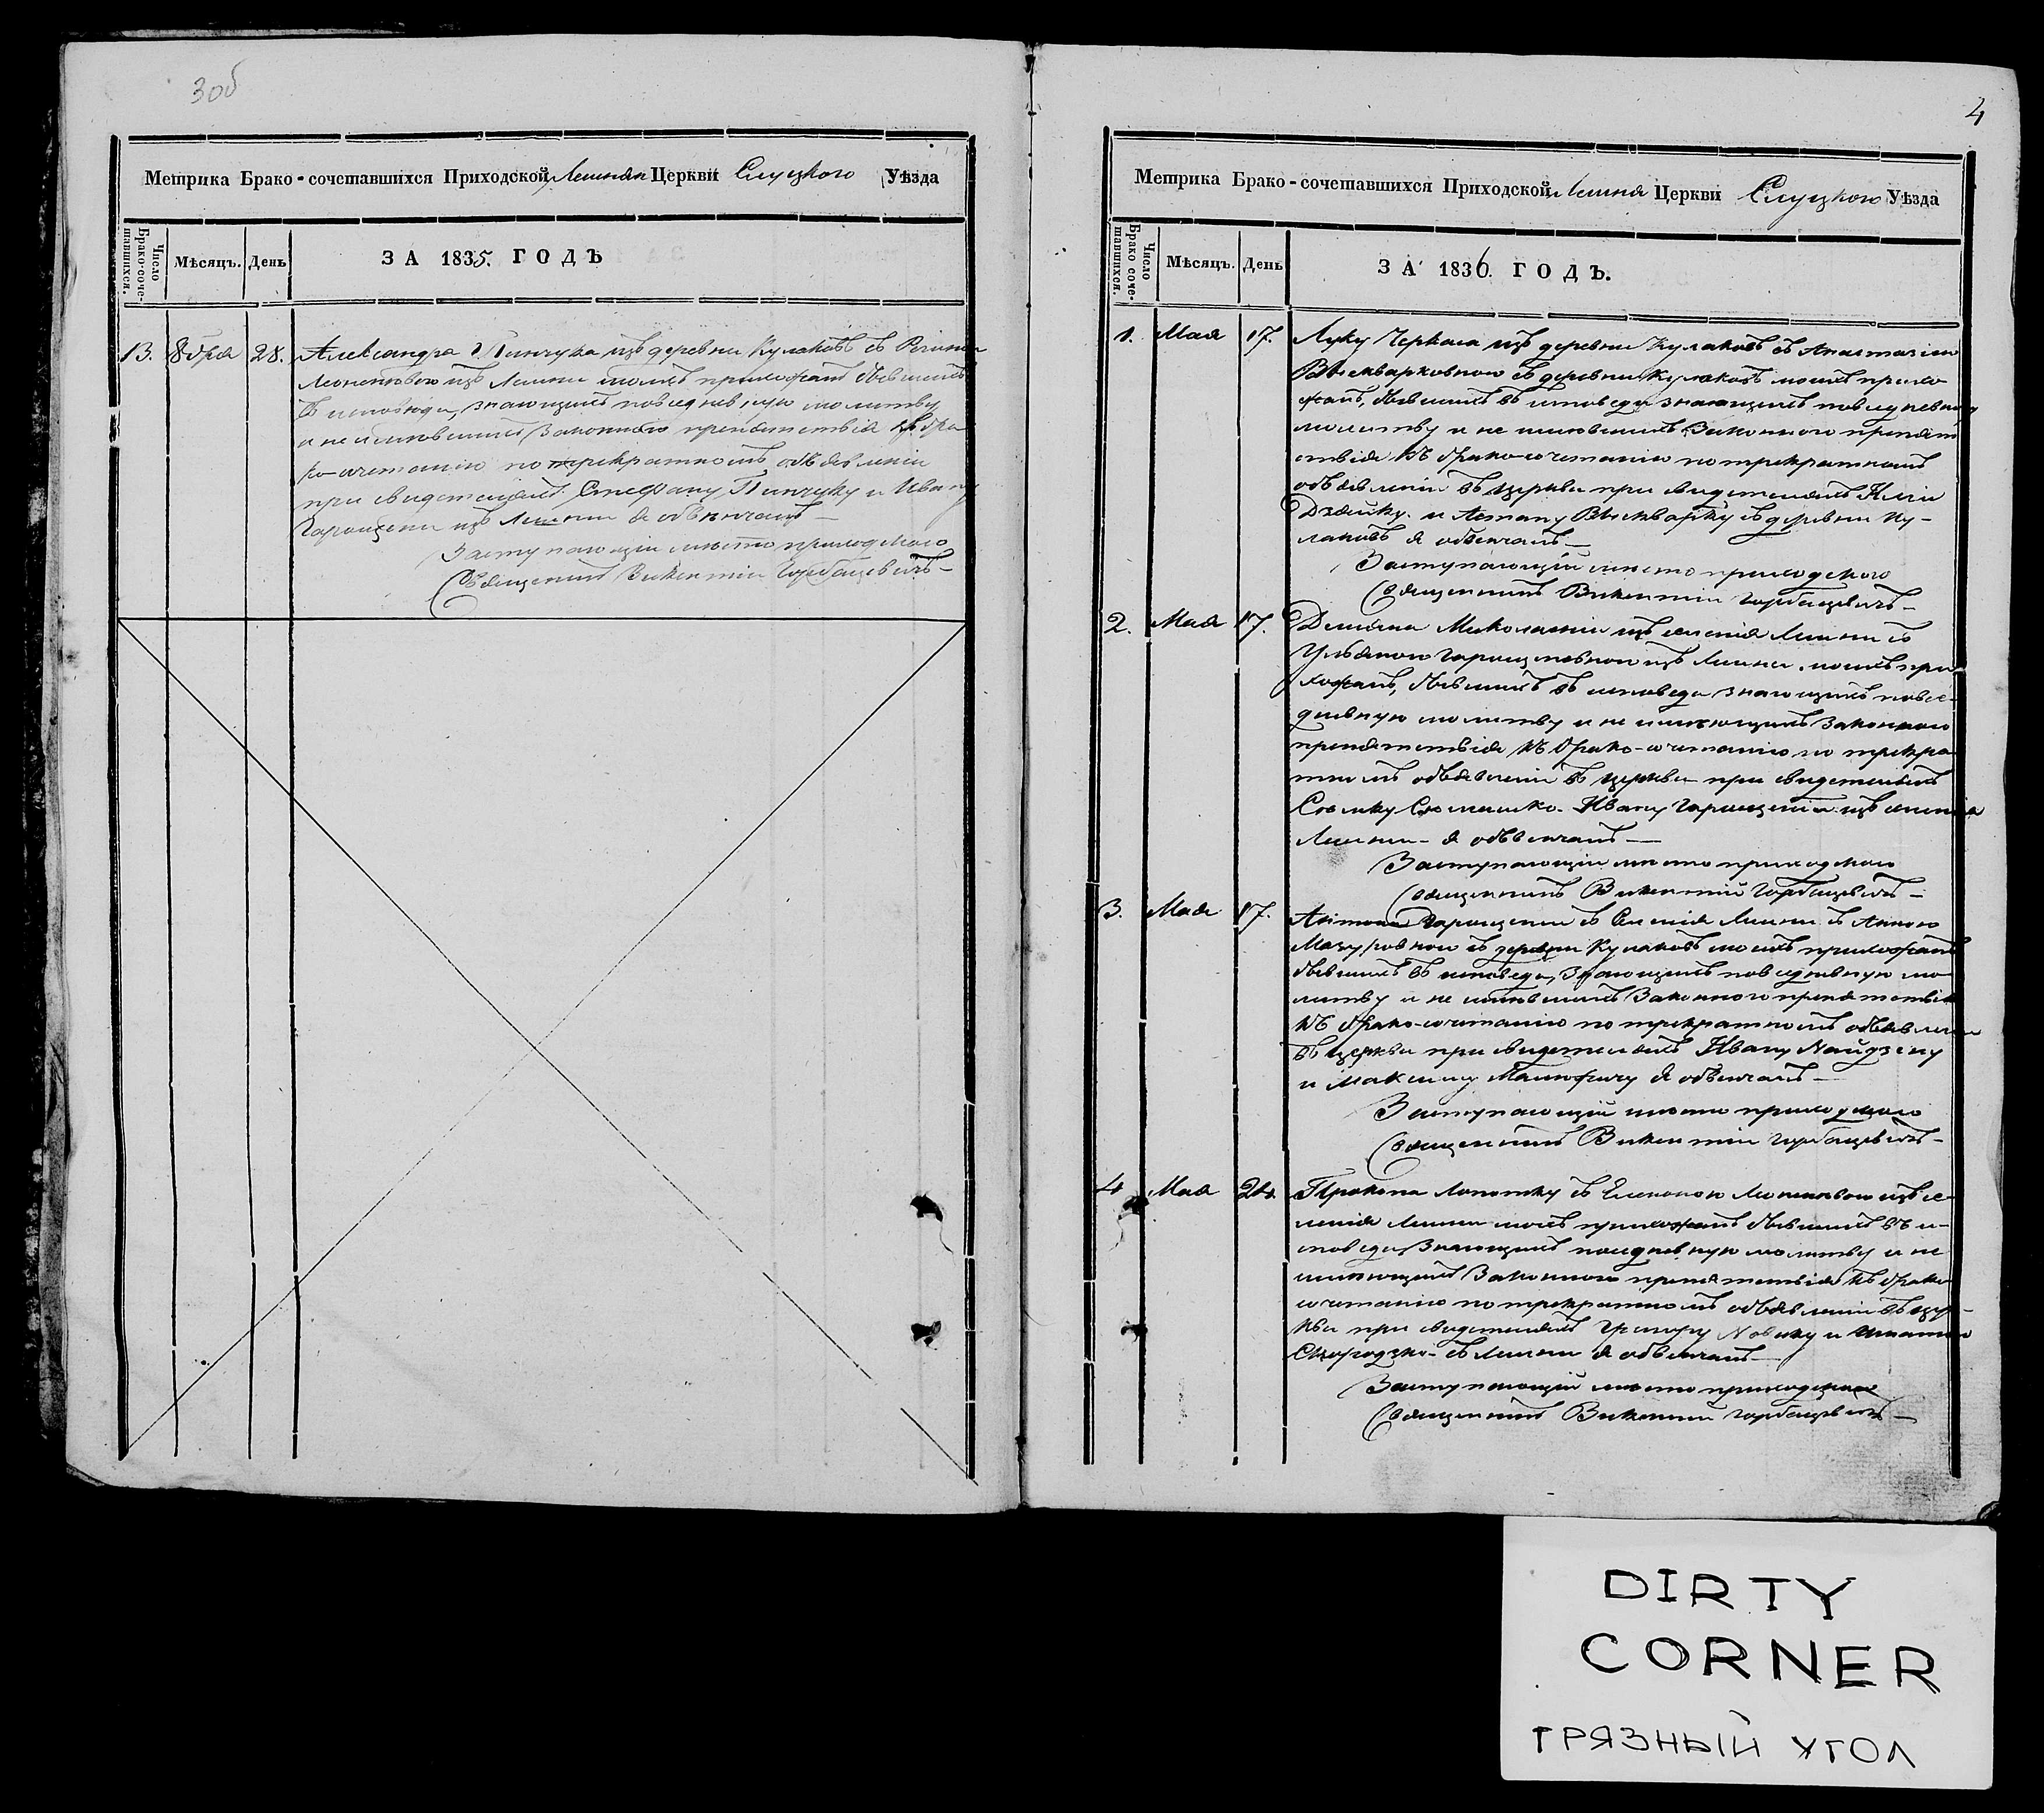 3об
Метрика Брако-сочетавшихся Приходской Лешнян Церкви Слуцкого Уѣзда
Число Брако-соче-тавшихся.
Мѣсяцъ.
День
ЗА 1835. ГОДЪ
13. 8бря 28. Александра Пинчука изъ деревни Кулаковъ съ
изъ Лешни моихъ прихожанъ бывшихъ
въ исповѣди, знающихъ повседневную молитву
и не имѣвшихъ Законного препятствія къ бра-
ко-сочетанію по трекратномъ объявленіи
при свидетеляхъ Стефану Пинчуку и Ивану
Горощени изъ Лешни я обвенчалъ—
Заступающій место приходского
Священникъ Викентій Горбацевичъ—
4
Метрика Брако-сочетавшихся Приходской Лешня Церкви Слуцкого Уѣзда
Число Брако соче-тавшихся.
Мѣсяцъ.
День
ЗА 1836. ГОДЪ.
1. Мая 17. Луку Черкаса изъ деревни Кулаковъ съ Анастазіею
съ деревни Кулаковъ моихъ прихо-
жанъ, бывшихъ въ исповеди знающихъ повседневную
молитву и не имѣвшихъ Законного препят
ствія къ брако-сочетанію по трекратномъ
объявленіи въ церкви при свидетеляхъ
и съ деревни Ку-
лаковъ я обвенчалъ—
Заступающій место приходского
Священникъ Викентій Горбацевичъ—
2. Мая 17. Демяна изъ селенія Лешни съ
Ульяною изъ Лешни, моихъ при
хожанъ, бывшихъ въ исповеди знающихъ повсе-
дневную молитву и не имеющихъ Законного
препятствія къ брако-сочетанію по трекра
тномъ объявленіи въ церкви при свидетеляхъ
Ивану Горощени изъ селенія
Лешни- я обвенчалъ—
Заступающій место приходского
Священникъ Викентій Горбацевичъ—
3. Мая 17. Антона Горощени съ Селенія Лешни съ Анною
Мазуровною съ деревни Кулаковъ моихъ прихожанъ
бывшихъ въ исповеди, знающихъ повседневную мо-
литву и не имѣвшихъ Законного препятствія
къ брако-сочетанію по трекратномъ объявленіи
въ церкви при свидетеляхъ Ивану
и Максиму я обвенчалъ—
Заступающій место приходского
Священникъ Викентій Горбацевичъ—
4 Мая 24. Прокопа Лопотку съ Еленою изъ се-
ленія Лешни моихъ прихожанъ бывшихъ въ и-
споведи знающихъ повседневную молитву и не
имеющихъ Законного препятствія къ брако
сочетанію по трекратномъ объявленіи въ цер-
кви при свидетеляхъ Григору Новику и Игнатію
съ Лешни я обвенчалъ—
Заступающій место приходского
Священникъ Викентій Горбацевичъ—
DIRTY
CORNER
ГРЯЗНЫЙ УГОЛ